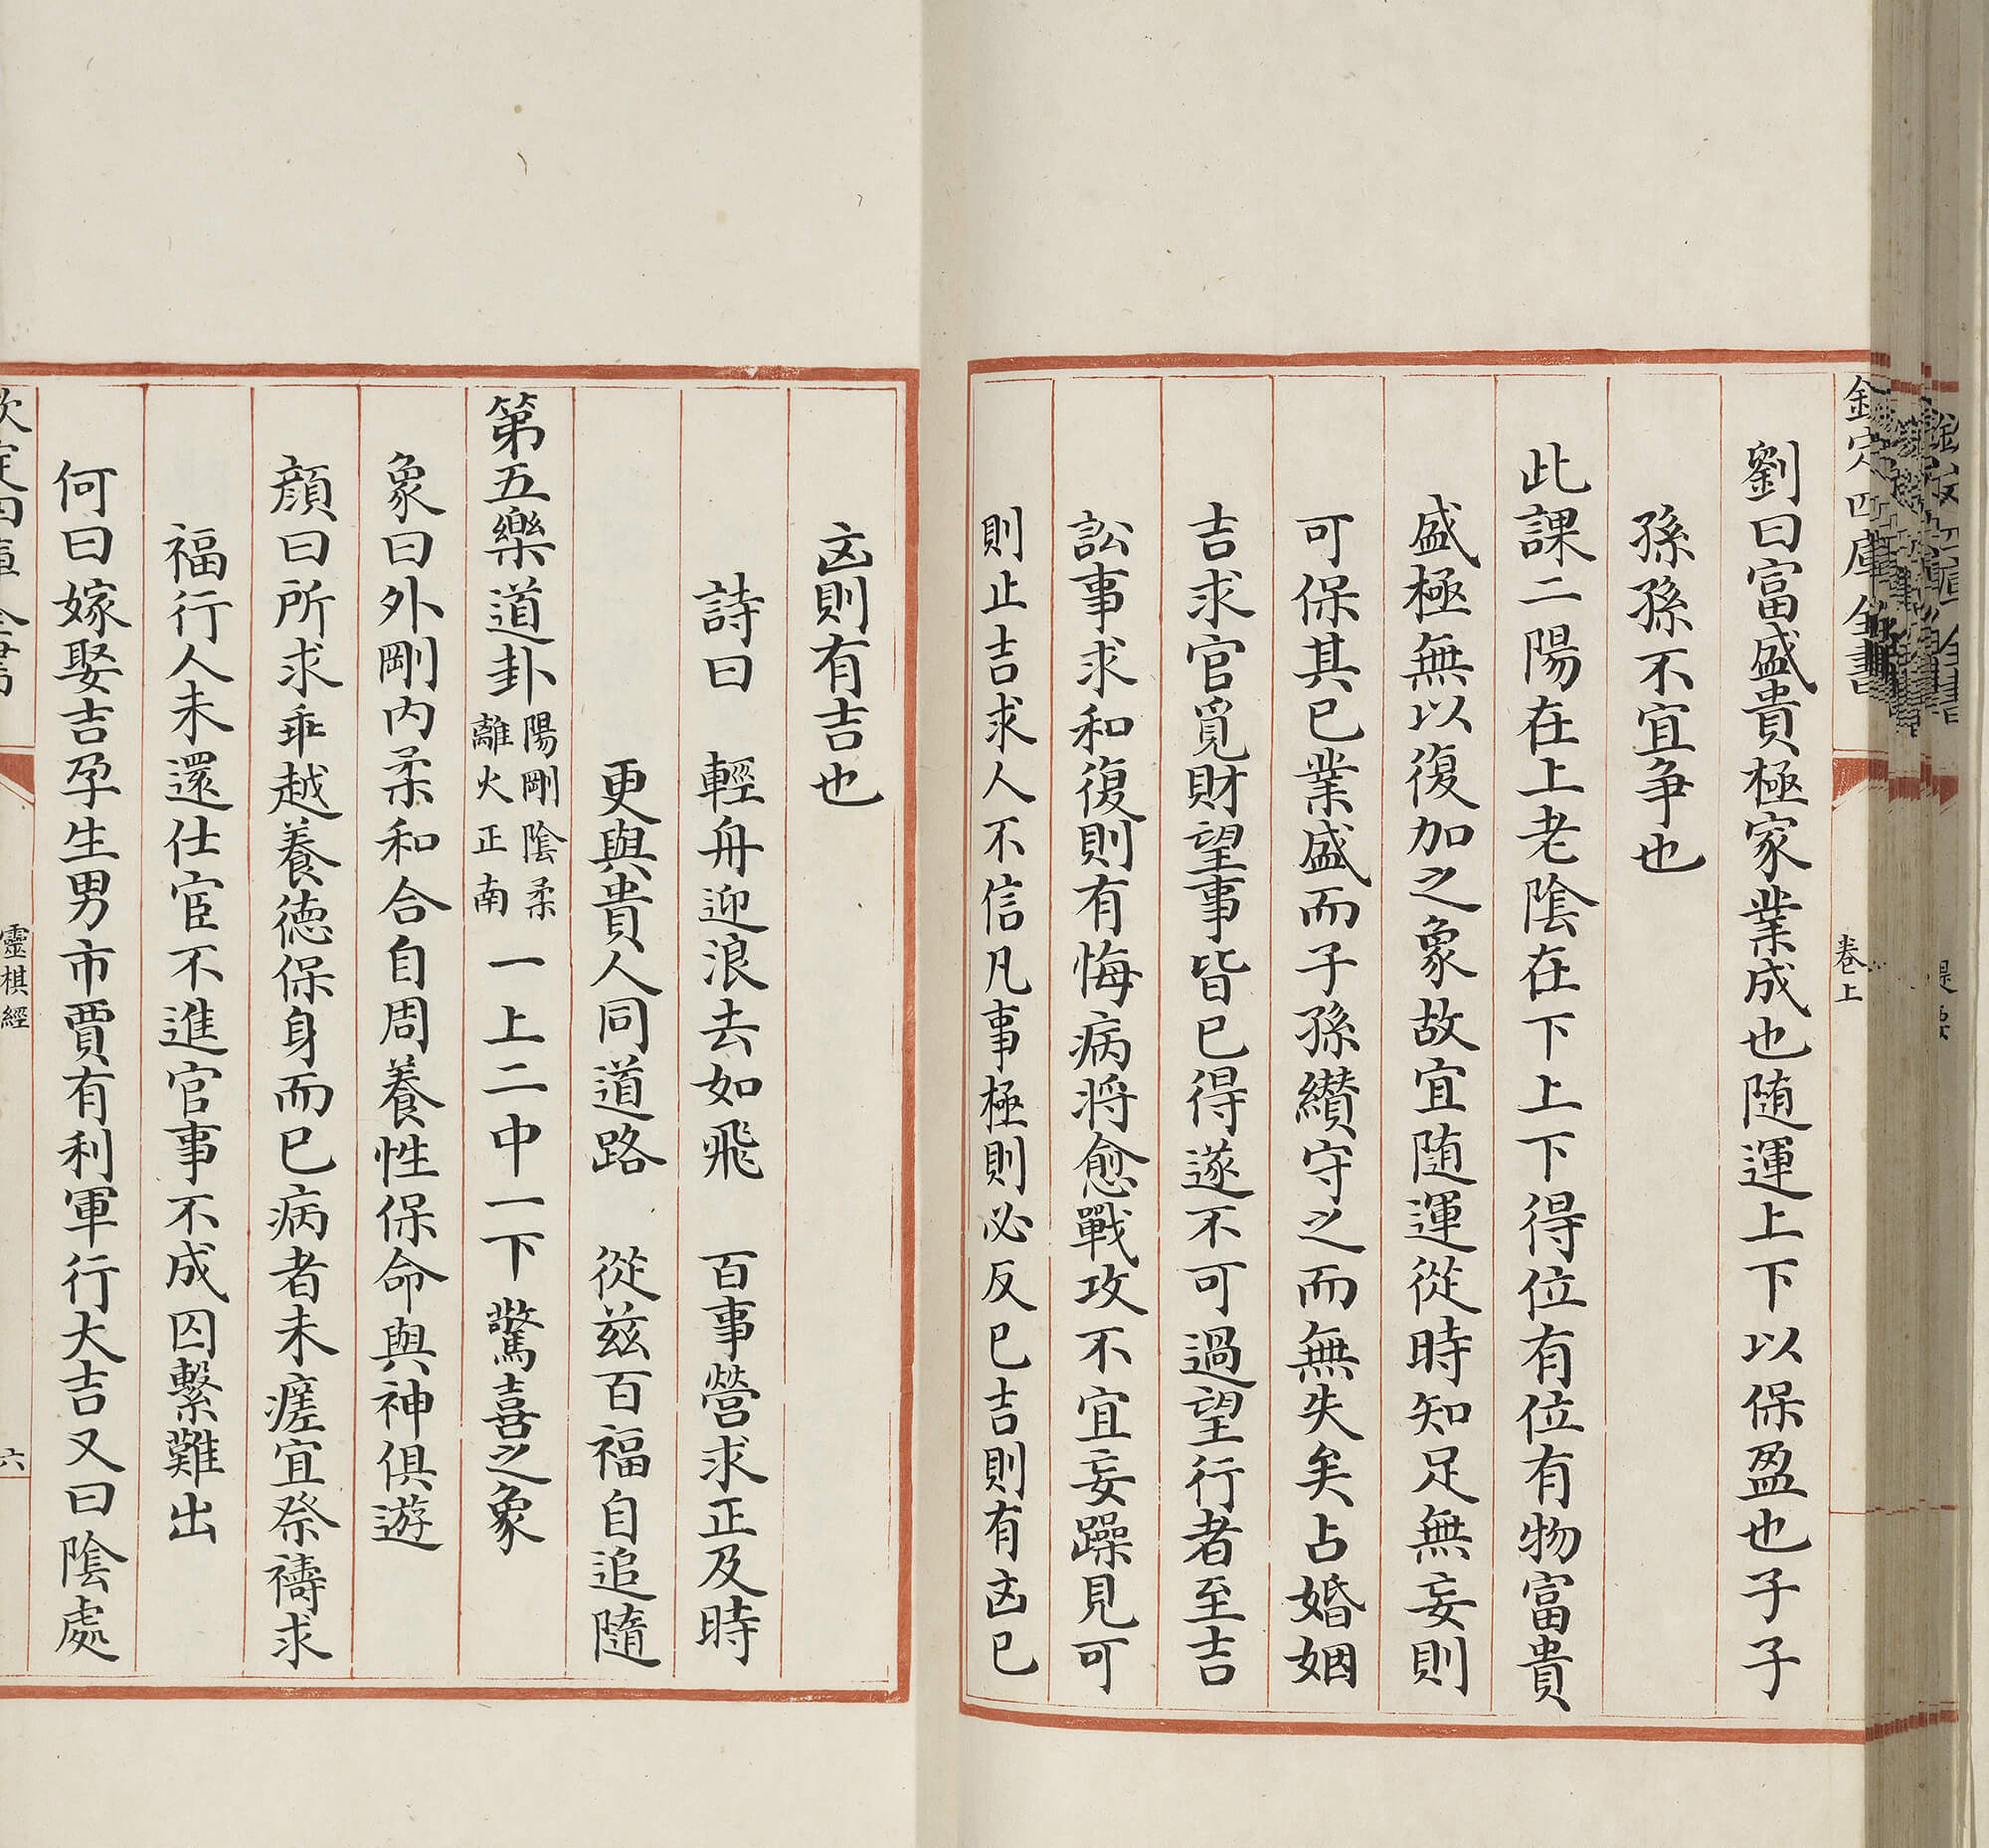 欽定四庫全書
卷上
劉曰富盛貴極家業成也随運上下以保盈也子子
孫孫不宜争也
此課二陽在上老陰在下上下得位有位有物富貴
盛極無以復加之象故宜随運從時知足無妄則
可保其已業盛而子孫纘守之而無失矣占婚姻
吉求官覓財望事皆已得遂不可過望行者至吉
訟事求和復則有悔病将愈戰攻不宜妄躁見可
則止吉求人不信凡事極則必反已吉則有㐫已
㐫則有吉也
詩曰　輕舟迎浪去如飛　百事營求正及時
更與貴人同道路　從茲百福自追隨
第五樂道卦 陽剛陰柔 離火正南 一上二中一下 驚喜之象
象曰外剛内柔和合自周養性保命與神俱遊
顔曰所求乖越養德保身而已病者未瘥宜祭禱求
福行人未還仕宦不進官事不成囚繫難出
何曰嫁娶吉孕生男市賈有利軍行大吉又曰陰處
欽定四庫全書
靈棋經
六